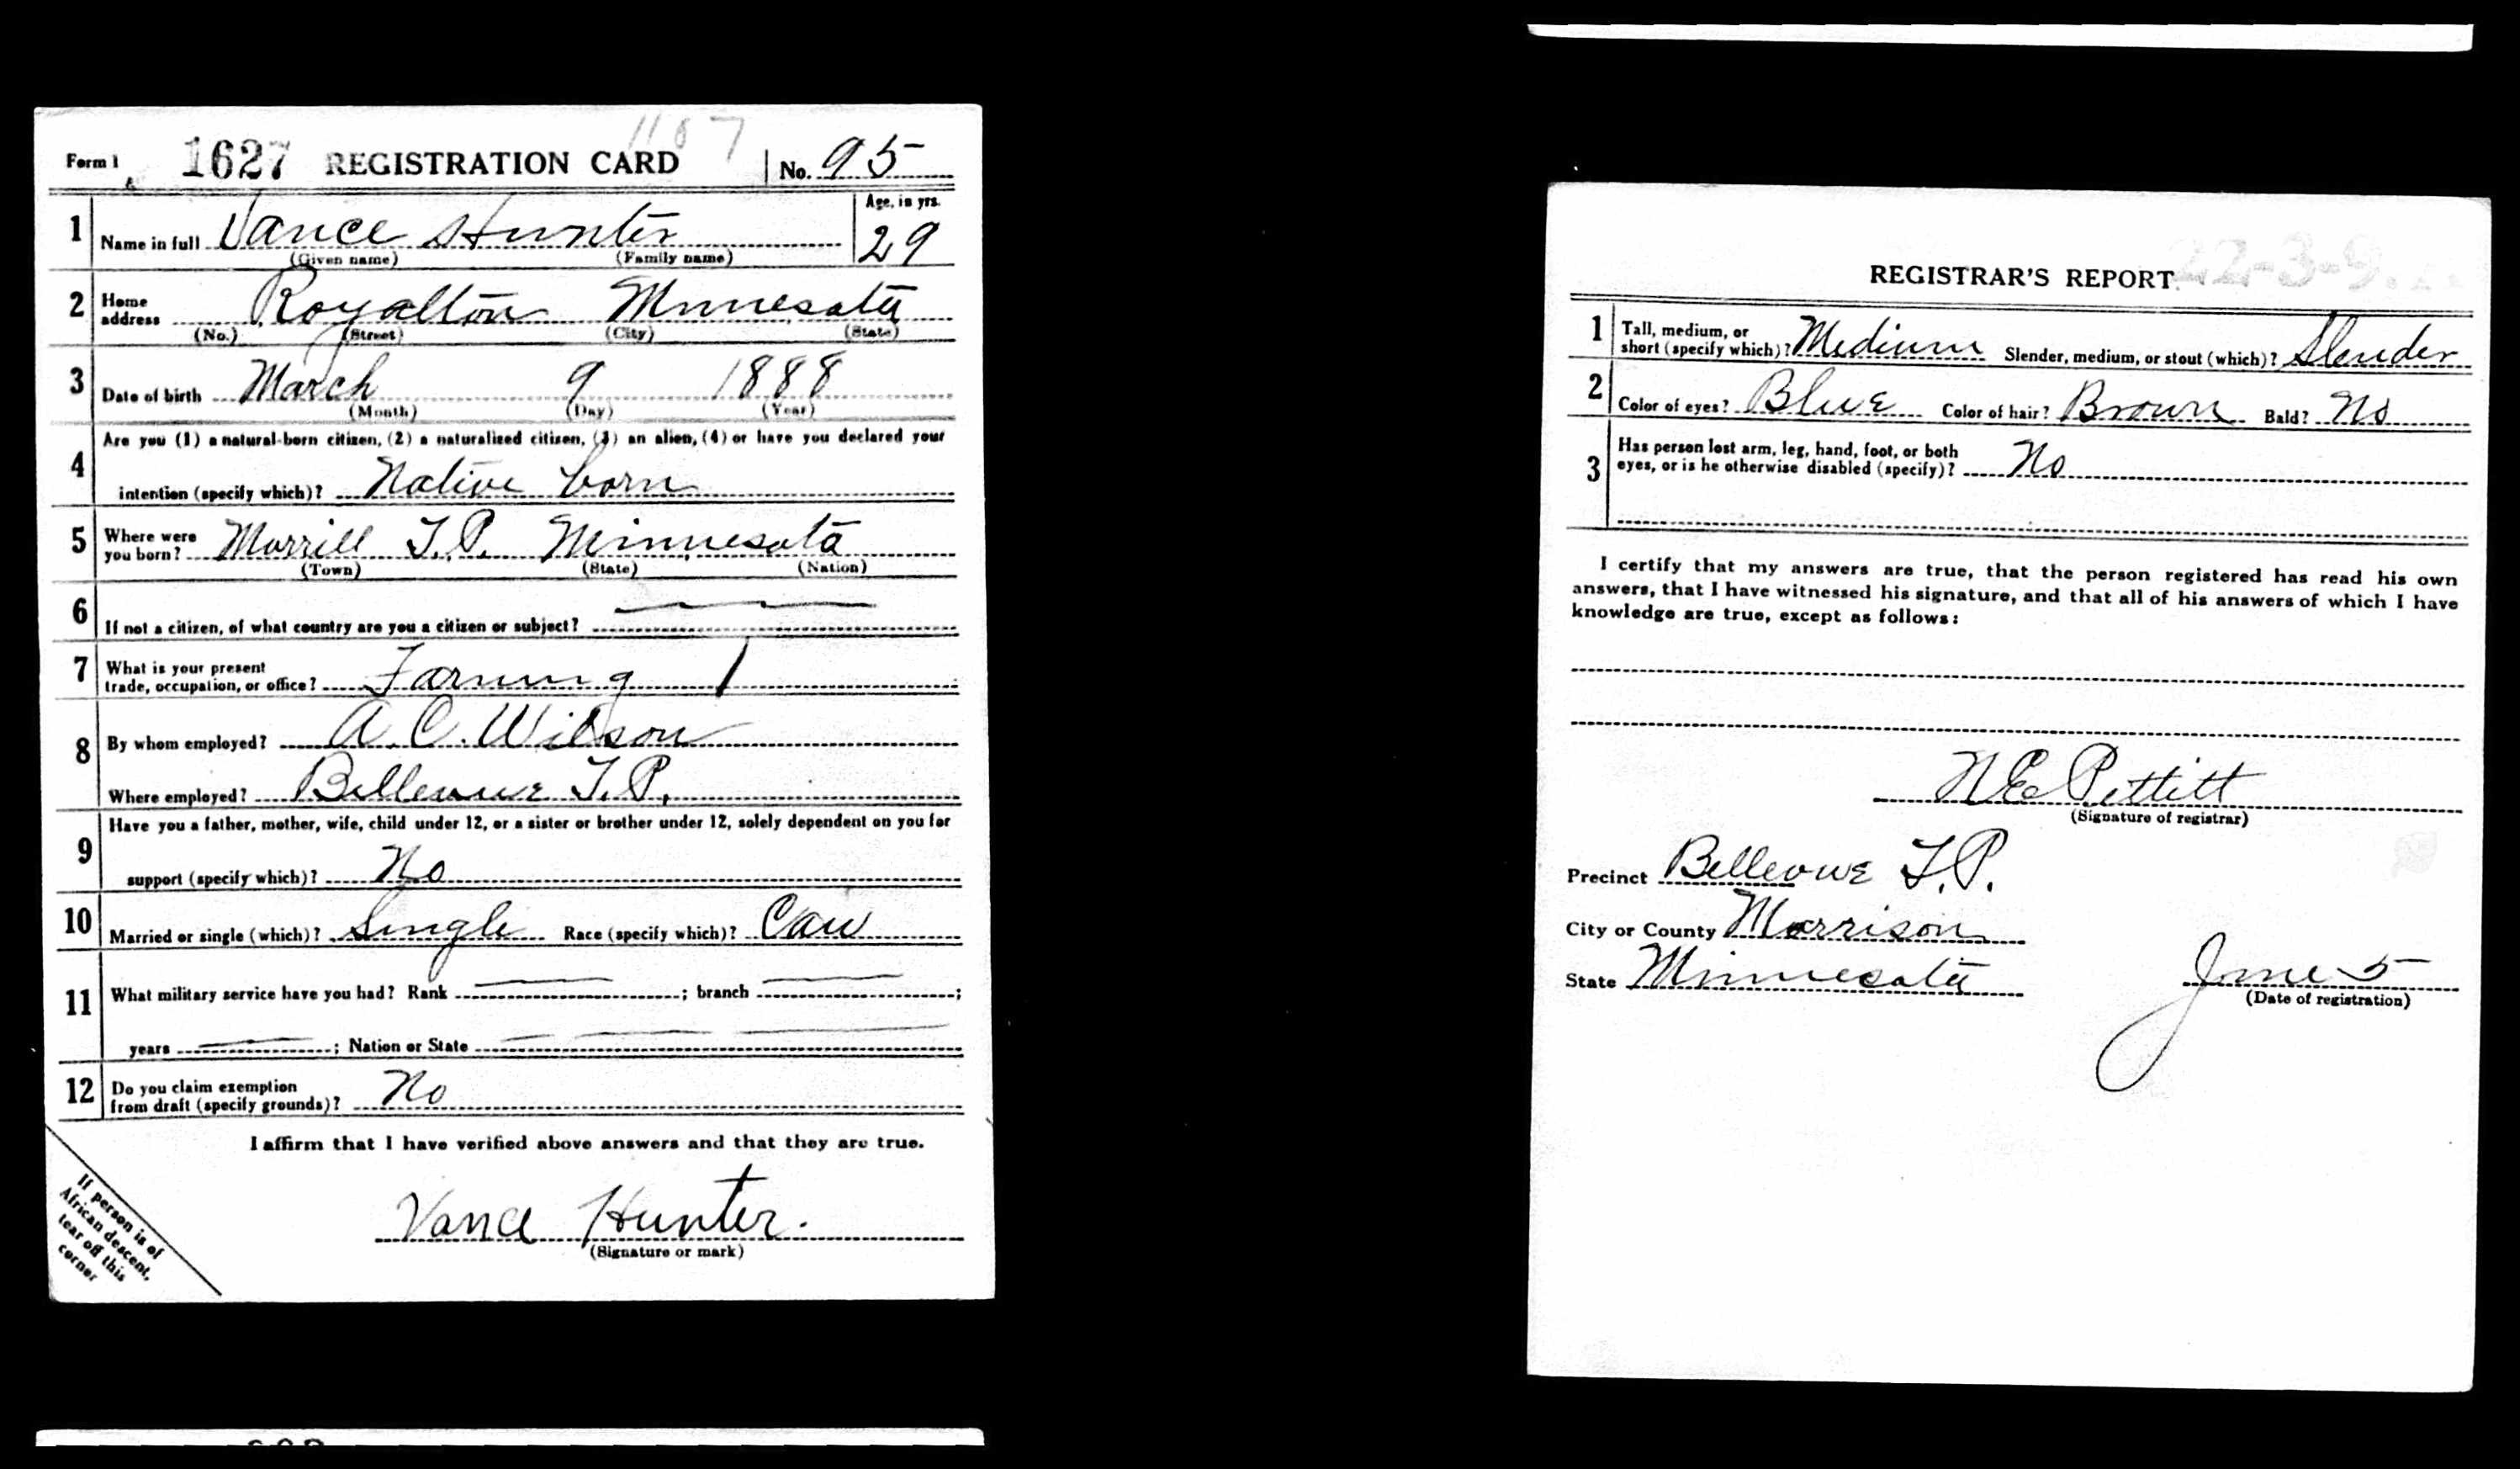 1107
Form 1 1627 REGISTRATION CARD No. 95
1 Name in full Vance Hunter Age, in yrs. 29
(Given name) (Family name)
2 Home address Royalton Minnesota
(No.) (Street) (City) (State)
3 Date of birth March 9 1888
(Month) (Day) (Year)
4 Are you (1) a natural-born citizen, (2) a naturalized citizen, (3) an alien, (4) or have you declared your
intention (specify which)? Native born
5 Where were you born? Morrill T.P. Minnesota
(Town) (State) (Nation)
6 If not a citizen, of what country are you a citizen or subject?
7 What is your present
trade, occupation, or office? Farming
8 By whom employed? A. C. Wilson
Where employed? Bellevue T.P.
9 Have you a father, mother, wife, child under 12, or a sister or brother under 12, solely dependent on you for
support (specify which)? No
10 Married or single (which)? Single Race (specify which)? Cau
11 What military service have you had? Rank ; branch ;
years ; Nation or State
12 Do you claim exemption
from draft (specify grounds)? No
I affirm that I have verified above answers and that they are true.
Vance Hunter.
(Signature or mark)
If person is of
African descent,
tear off this
corner
REGISTRAR'S REPORT 22-3-9.
1 Tall, medium, or
short (specify which)? Medium Slender, medium, or stout (which)? Slender
2 Color of eyes? Blue Color of hair? Brown Bald? No
3 Has person lost arm, leg, hand, foot, or both
eyes, or is he otherwise disabled (specify)? No
I certify that my answers are true, that the person registered has read his own
answers, that I have witnessed his signature, and that all of his answers of which I have
knowledge are true, except as follows:
N E Pettitt
(Signature of registrar)
Precinct Bellevue T.P.
City or County Morrison
State Minnesota June 5
(Date of registration)